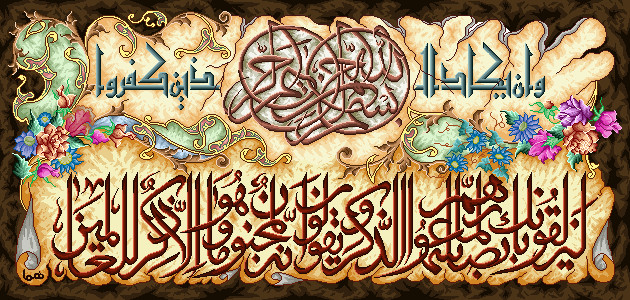 بسم الله الرحمن الرحیم
وان یکاد الذین کفروا
لیزلقونک بابصارهم لما سمعوا الذکر و یقولون انه لمجنون و ما هو الا ذکر للعالمین
هما